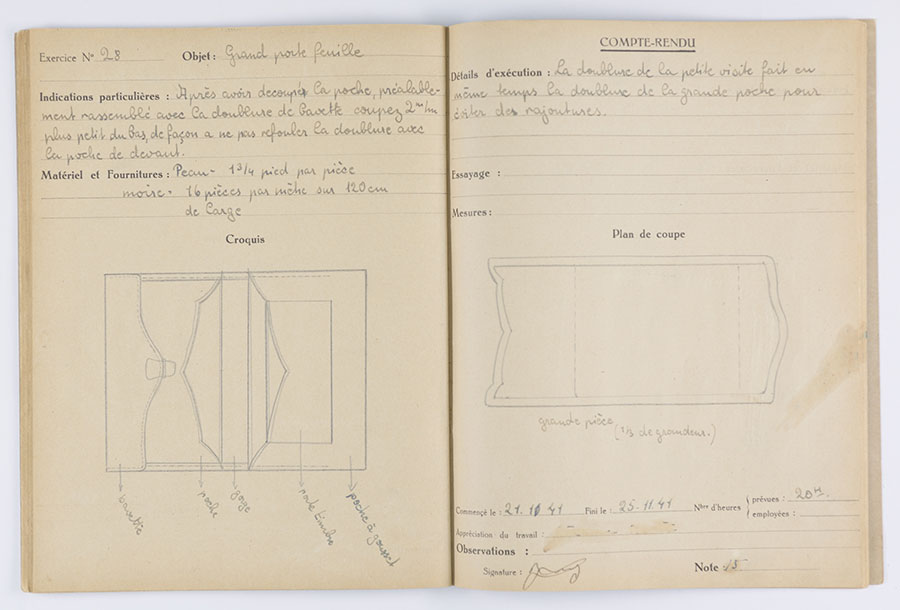 Exercice No 28 Objet: Grand porte feuille
Indications particulières : Après avoir decoupés la poche, préalable-
ment rassemblé avec la doublure de bavette coupez 2 m/m
plus petit du bas, de façon a ne pas refouler la doublure avec
la poche de devant.
Matériel et Fournitures : Peau - 1 3/4 pied par pièce
moire - 16 pièces par mêtre sur 120 cm
de large
Croquis
bavette
poche
gorge
porte timbre
poche à gousset
COMPTE-RENDU
Détails d'exécution : La doublure de la petite visite fait en
même temps la doublure de la grande poche pour
éviter des rajoutures.
Essayage :
Mesures :
Plan de coupe
grande pièce
(1/3 de grandeur.)
Commencé le : 21.10 41 Fini le : 25-11.41 Nbre d'heures prévues : 20
employées :
Appréciation du travail :
Observations :
Signature :
Note 15